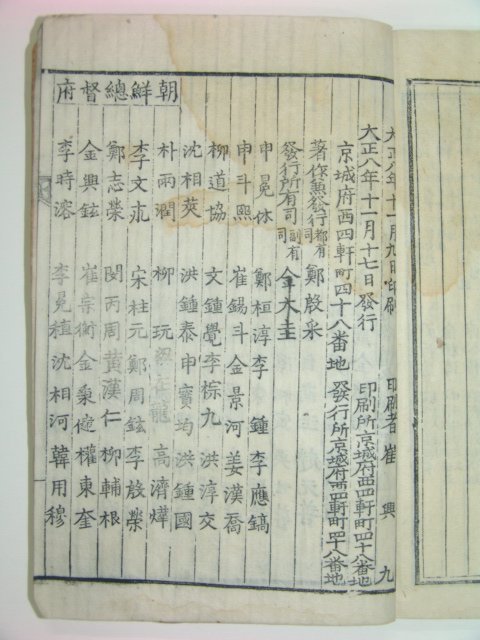 大正八年十一月九日印刷　印刷者崔　興　九
大正八年十一月十七日發行　印刷所京城府西四軒町四十八番地
京城府西四軒町四十八番地　發行所京城府西四軒町四十八番地
著作兼發行都有司鄭殷采
發行所有司副有司金大圭
申冕休　鄭桓淳　李　鍾　李應鎬
申斗熙　崔錫斗　金景河　姜漢喬
柳道協　文鍾覺　李悰九　洪淳交
沈相莢　洪鍾泰　申寶均　洪鍾國
朴雨潤　柳　玩　　在龍　高濟燁
李文永　宋柱元　鄭周鉉　李殷榮
鄭志榮　閔丙周　黃漢仁　柳輔根
金興鉉　崔宗衡　金　　　權東奎
李時溶　李冕稙　沈相河　韓用穆
朝鮮總督府